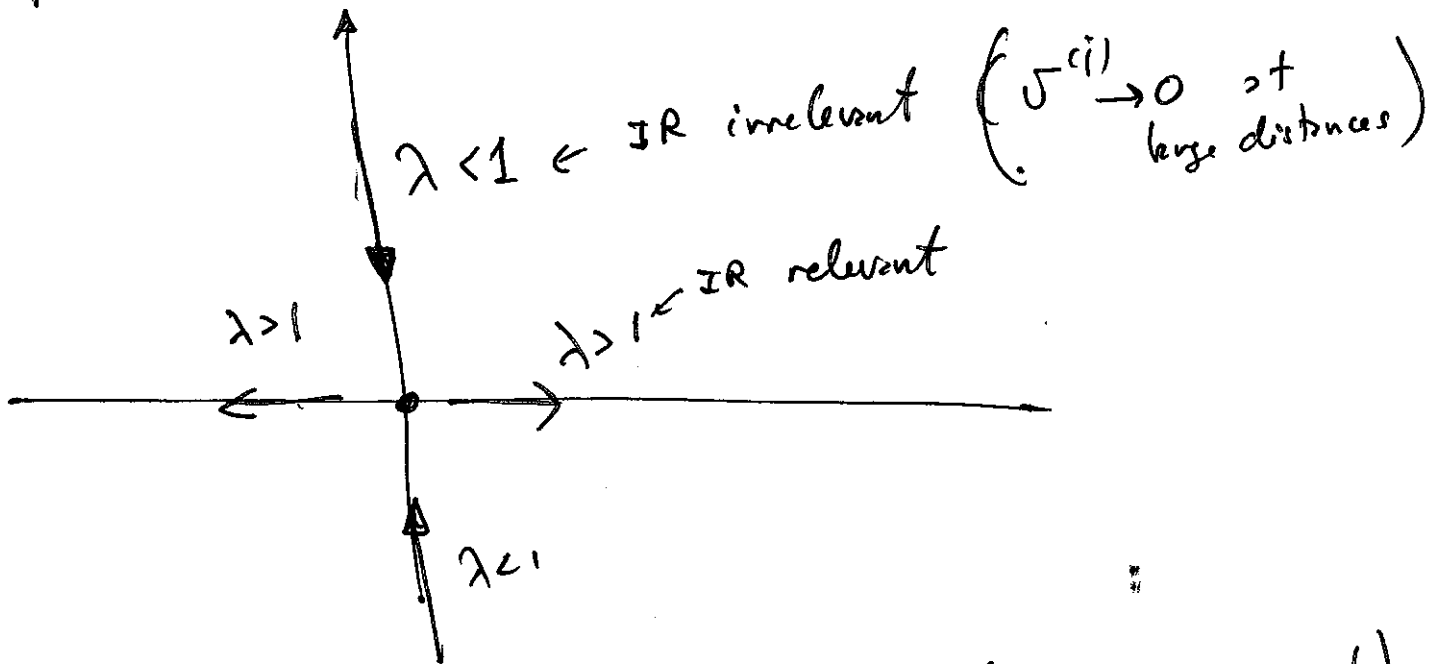 λ < 1 ← IR irrelevant ( v^(i) → 0 at
large distances )
λ > 1 λ > 1 ← IR relevant
λ < 1